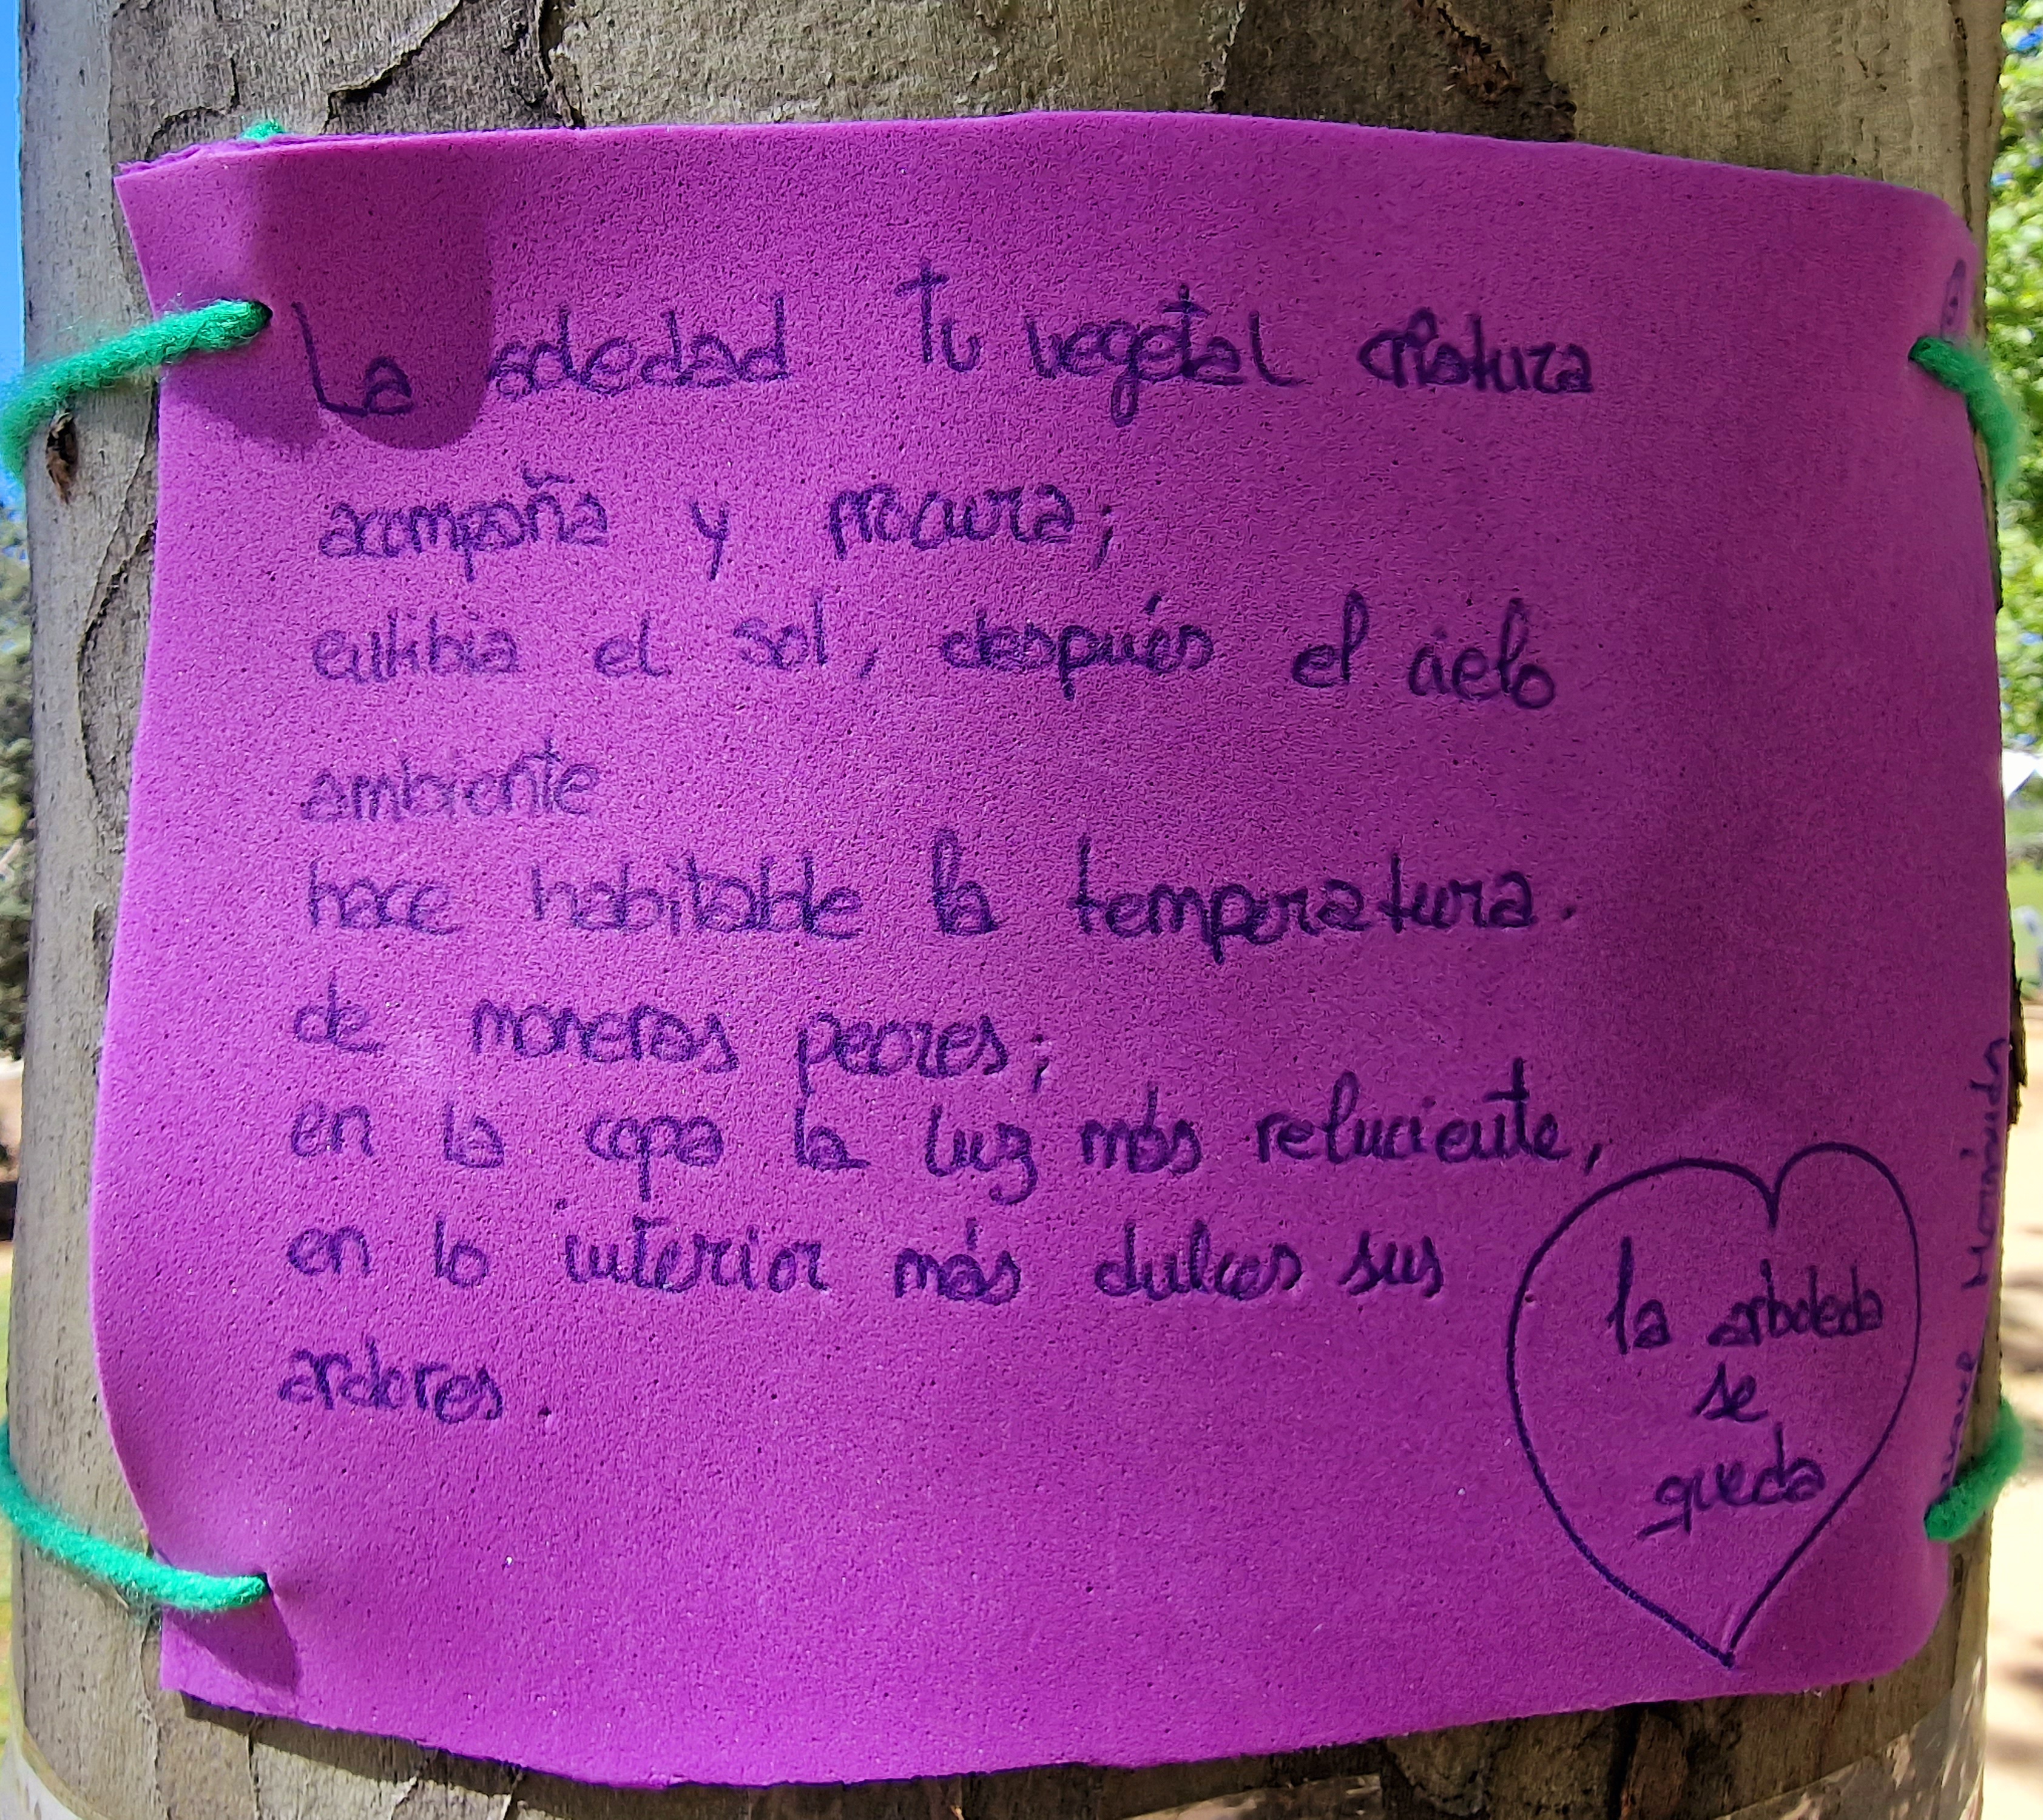 La soledad tu vegetal criatura
acompaña y procura;
cultibia el sol, después el cielo
ambiente
hace habitable la temperatura.
de moneras peores;
en la copa la luz más reluciente,
en lo interior más dulces sus
ardores.
la arboleda
se
queda